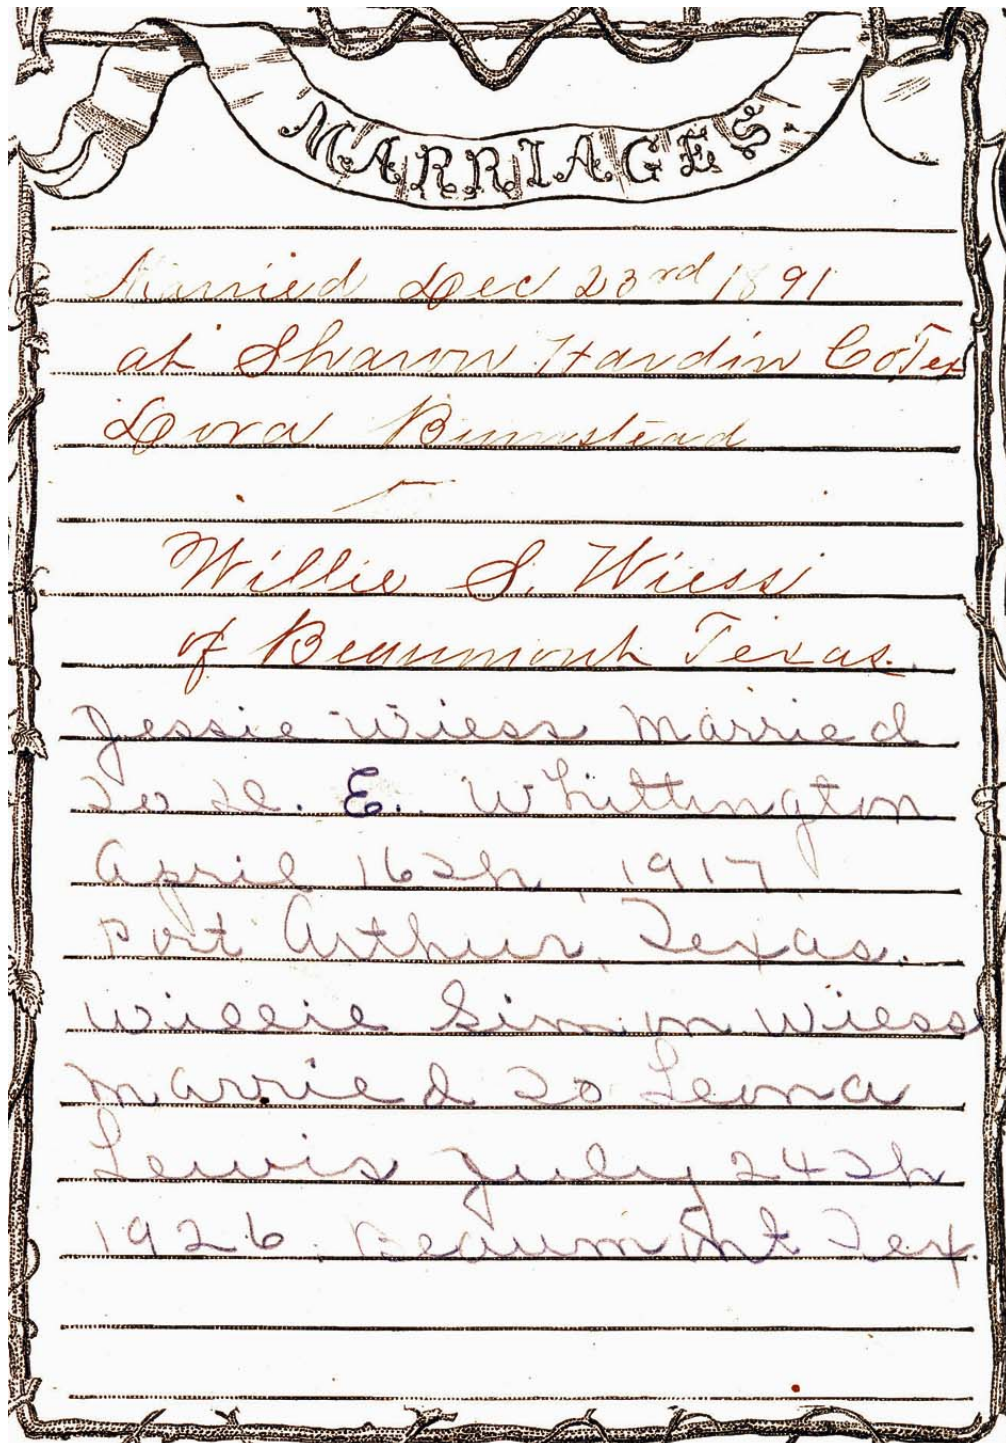 MARRIAGES
Married Dec 23rd 1891
at Sharon Hardin Co Tex
Dora Bumstead
Willie S. Wiess
of Beaumont Texas.
Jessie Wiess Married
To E. Whittington
April 16th, 1917
Port Arthur, Texas.
Willie Simon Wiess
Married To Leona
Lewis July 24th
1926. Beaumont Tex.